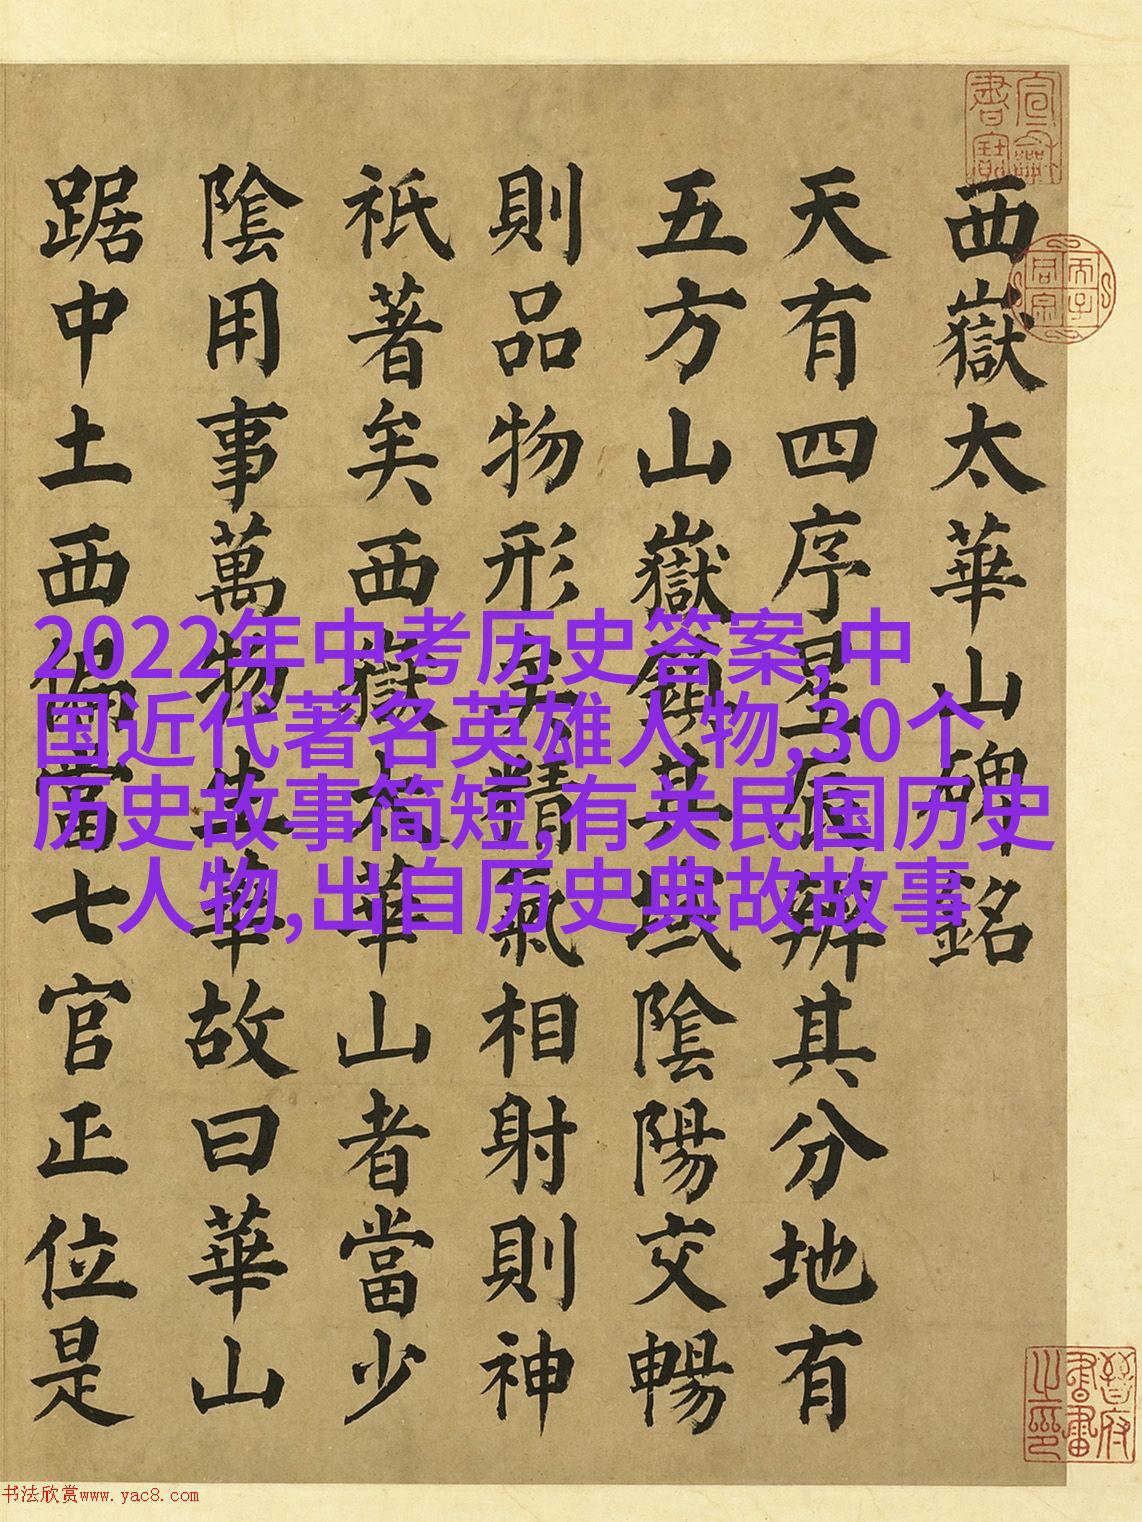 西嶽太華山碑銘
天有四序星辰辨其分地有
五方山嶽鎮其域陰陽交暢
則品物形焉精氣相射則神
祇著矣西嶽太華山者當少
陰用事萬物生華故曰華山
踞中土西偏當七官正位是
2022年中考历史答案,中
国近代著名英雄人物,30个
历史故事简短,有关民国历史
人物,出自历史典故故事
晉府書畫之印
书法欣赏www.yac8.com